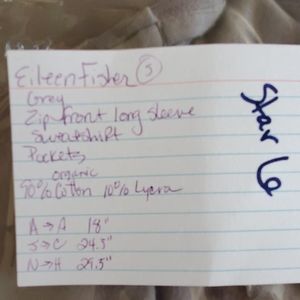 Eileen Fisher (S)
Grey
Zip front long sleeve
Sweatshirt
Pockets
organic
90% Cotton 10% Lycra
A→A 18"
S→C 24.5"
N→H 29.5"
Star 6